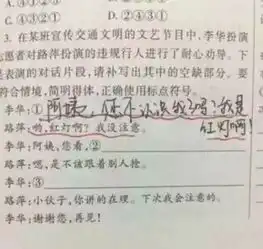 A. ④③②⑤
C. ④③②①
D. ②④③①
3. 在某班宣传交通文明的文艺节目中,李华扮演
志愿者对路萍扮演的违规行人进行了耐心劝导。下
是表演的对话片段,请补写出其中的空缺部分。要
符合情境,简明得体,正确使用标点符号。
李华:①阿姨,您不认识我了吗?我是
红灯啊!
路萍:哟,红灯啊?我没注意。
李华:阿姨,您看,②
路萍:嗯,是不该跟着别人抢。
李华:③
路萍:小伙子,你讲的在理。下次我会注意的。
李华:谢谢您,再见!